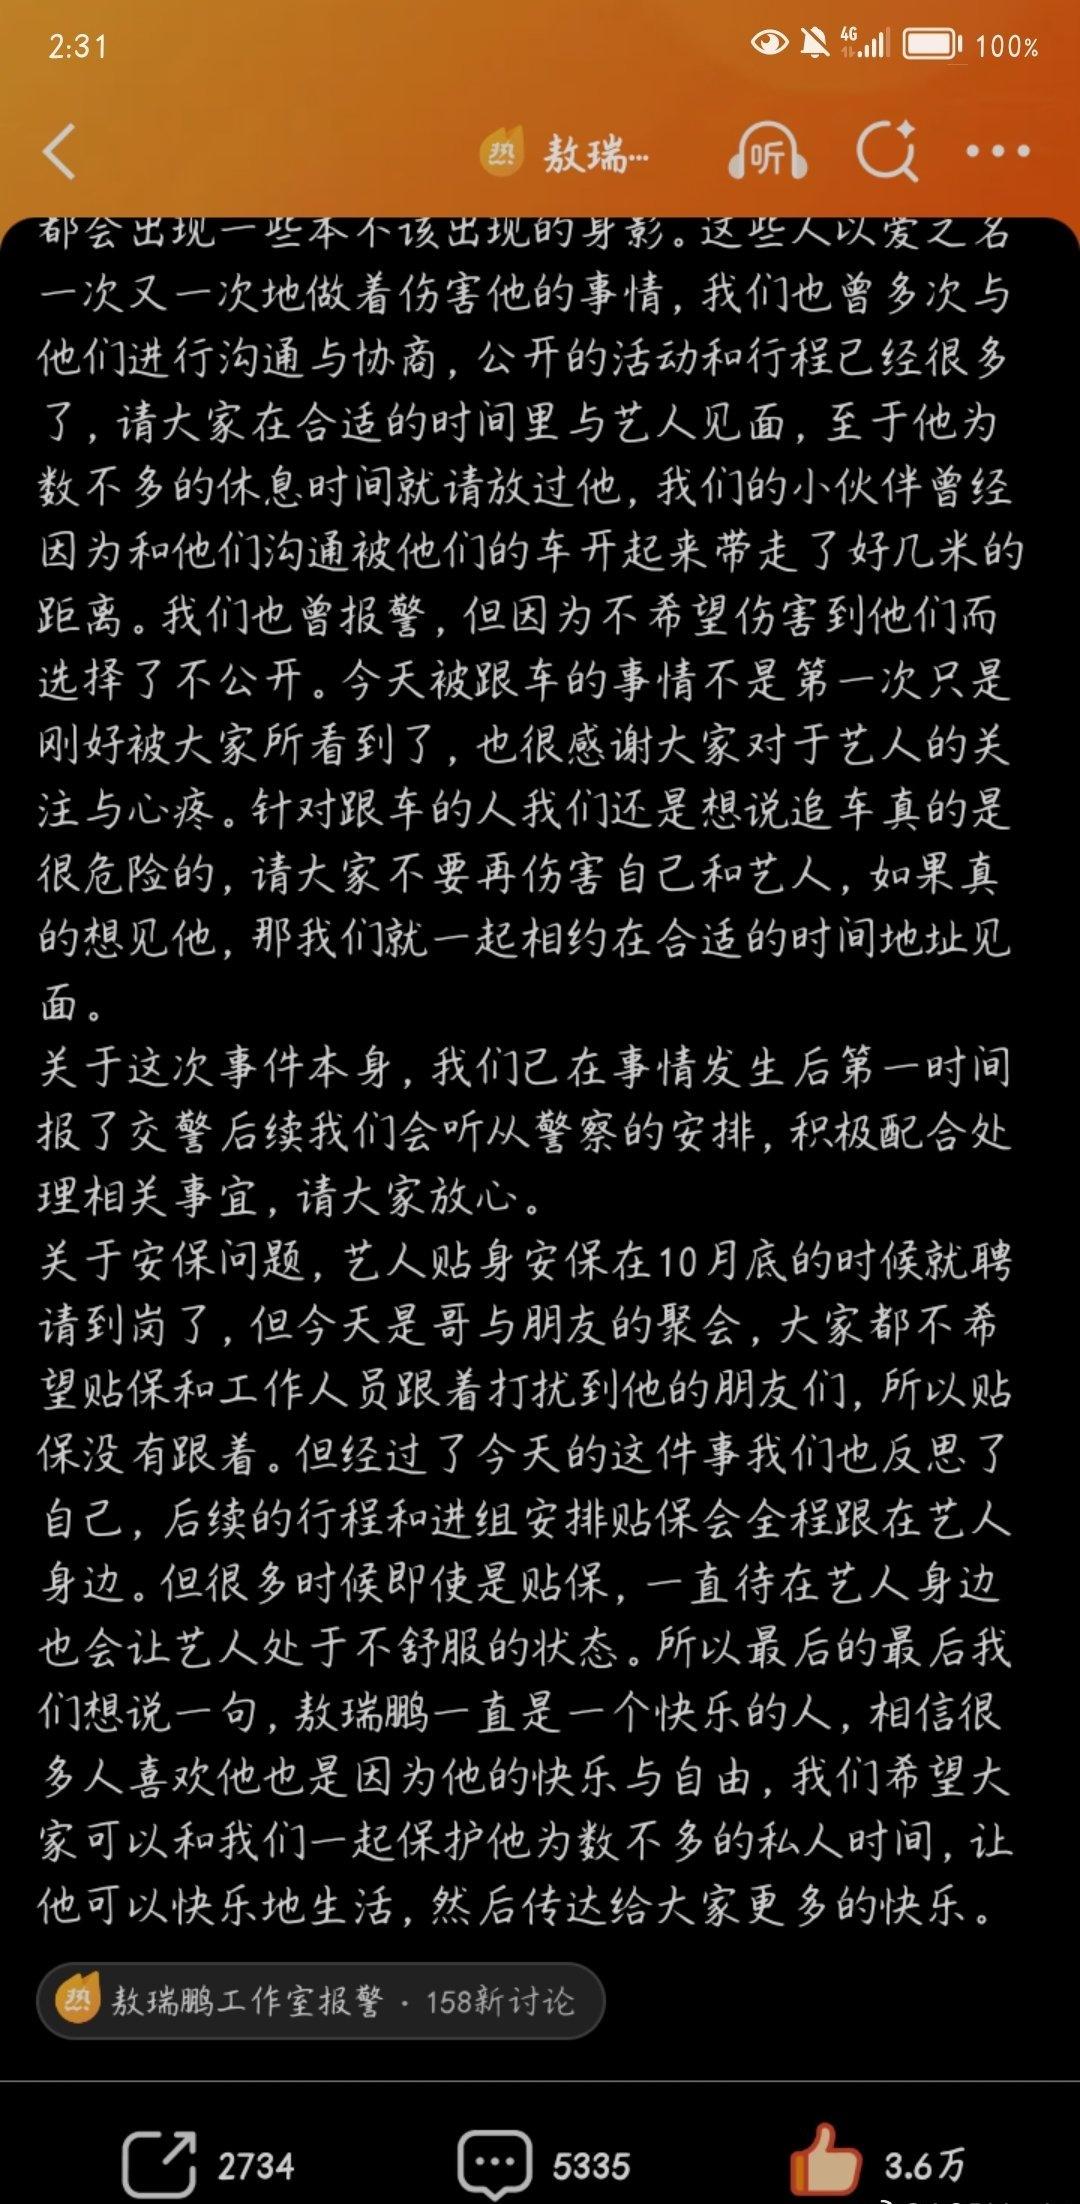 2:31
4G
100%
热 敖瑞…
听
都会出现一些本不该出现的身影。这些人以爱之名
一次又一次地做着伤害他的事情，我们也曾多次与
他们进行沟通与协商，公开的活动和行程已经很多
了，请大家在合适的时间里与艺人见面，至于他为
数不多的休息时间就请放过他，我们的小伙伴曾经
因为和他们沟通被他们的车开起来带走了好几米的
距离。我们也曾报警，但因为不希望伤害到他们而
选择了不公开。今天被跟车的事情不是第一次只是
刚好被大家所看到了，也很感谢大家对于艺人的关
注与心疼。针对跟车的人我们还是想说追车真的是
很危险的，请大家不要再伤害自己和艺人，如果真
的想见他，那我们就一起相约在合适的时间地址见
面。
关于这次事件本身，我们已在事情发生后第一时间
报了交警后续我们会听从警察的安排，积极配合处
理相关事宜，请大家放心。
关于安保问题，艺人贴身安保在10月底的时候就聘
请到岗了，但今天是哥与朋友的聚会，大家都不希
望贴保和工作人员跟着打扰到他的朋友们，所以贴
保没有跟着。但经过了今天的这件事我们也反思了
自己，后续的行程和进组安排贴保会全程跟在艺人
身边。但很多时候即使是贴保，一直待在艺人身边
也会让艺人处于不舒服的状态。所以最后的最后我
们想说一句，敖瑞鹏一直是一个快乐的人，相信很
多人喜欢他也是因为他的快乐与自由，我们希望大
家可以和我们一起保护他为数不多的私人时间，让
他可以快乐地生活，然后传达给大家更多的快乐。
热 敖瑞鹏工作室报警 · 158新讨论
2734
5335
3.6万